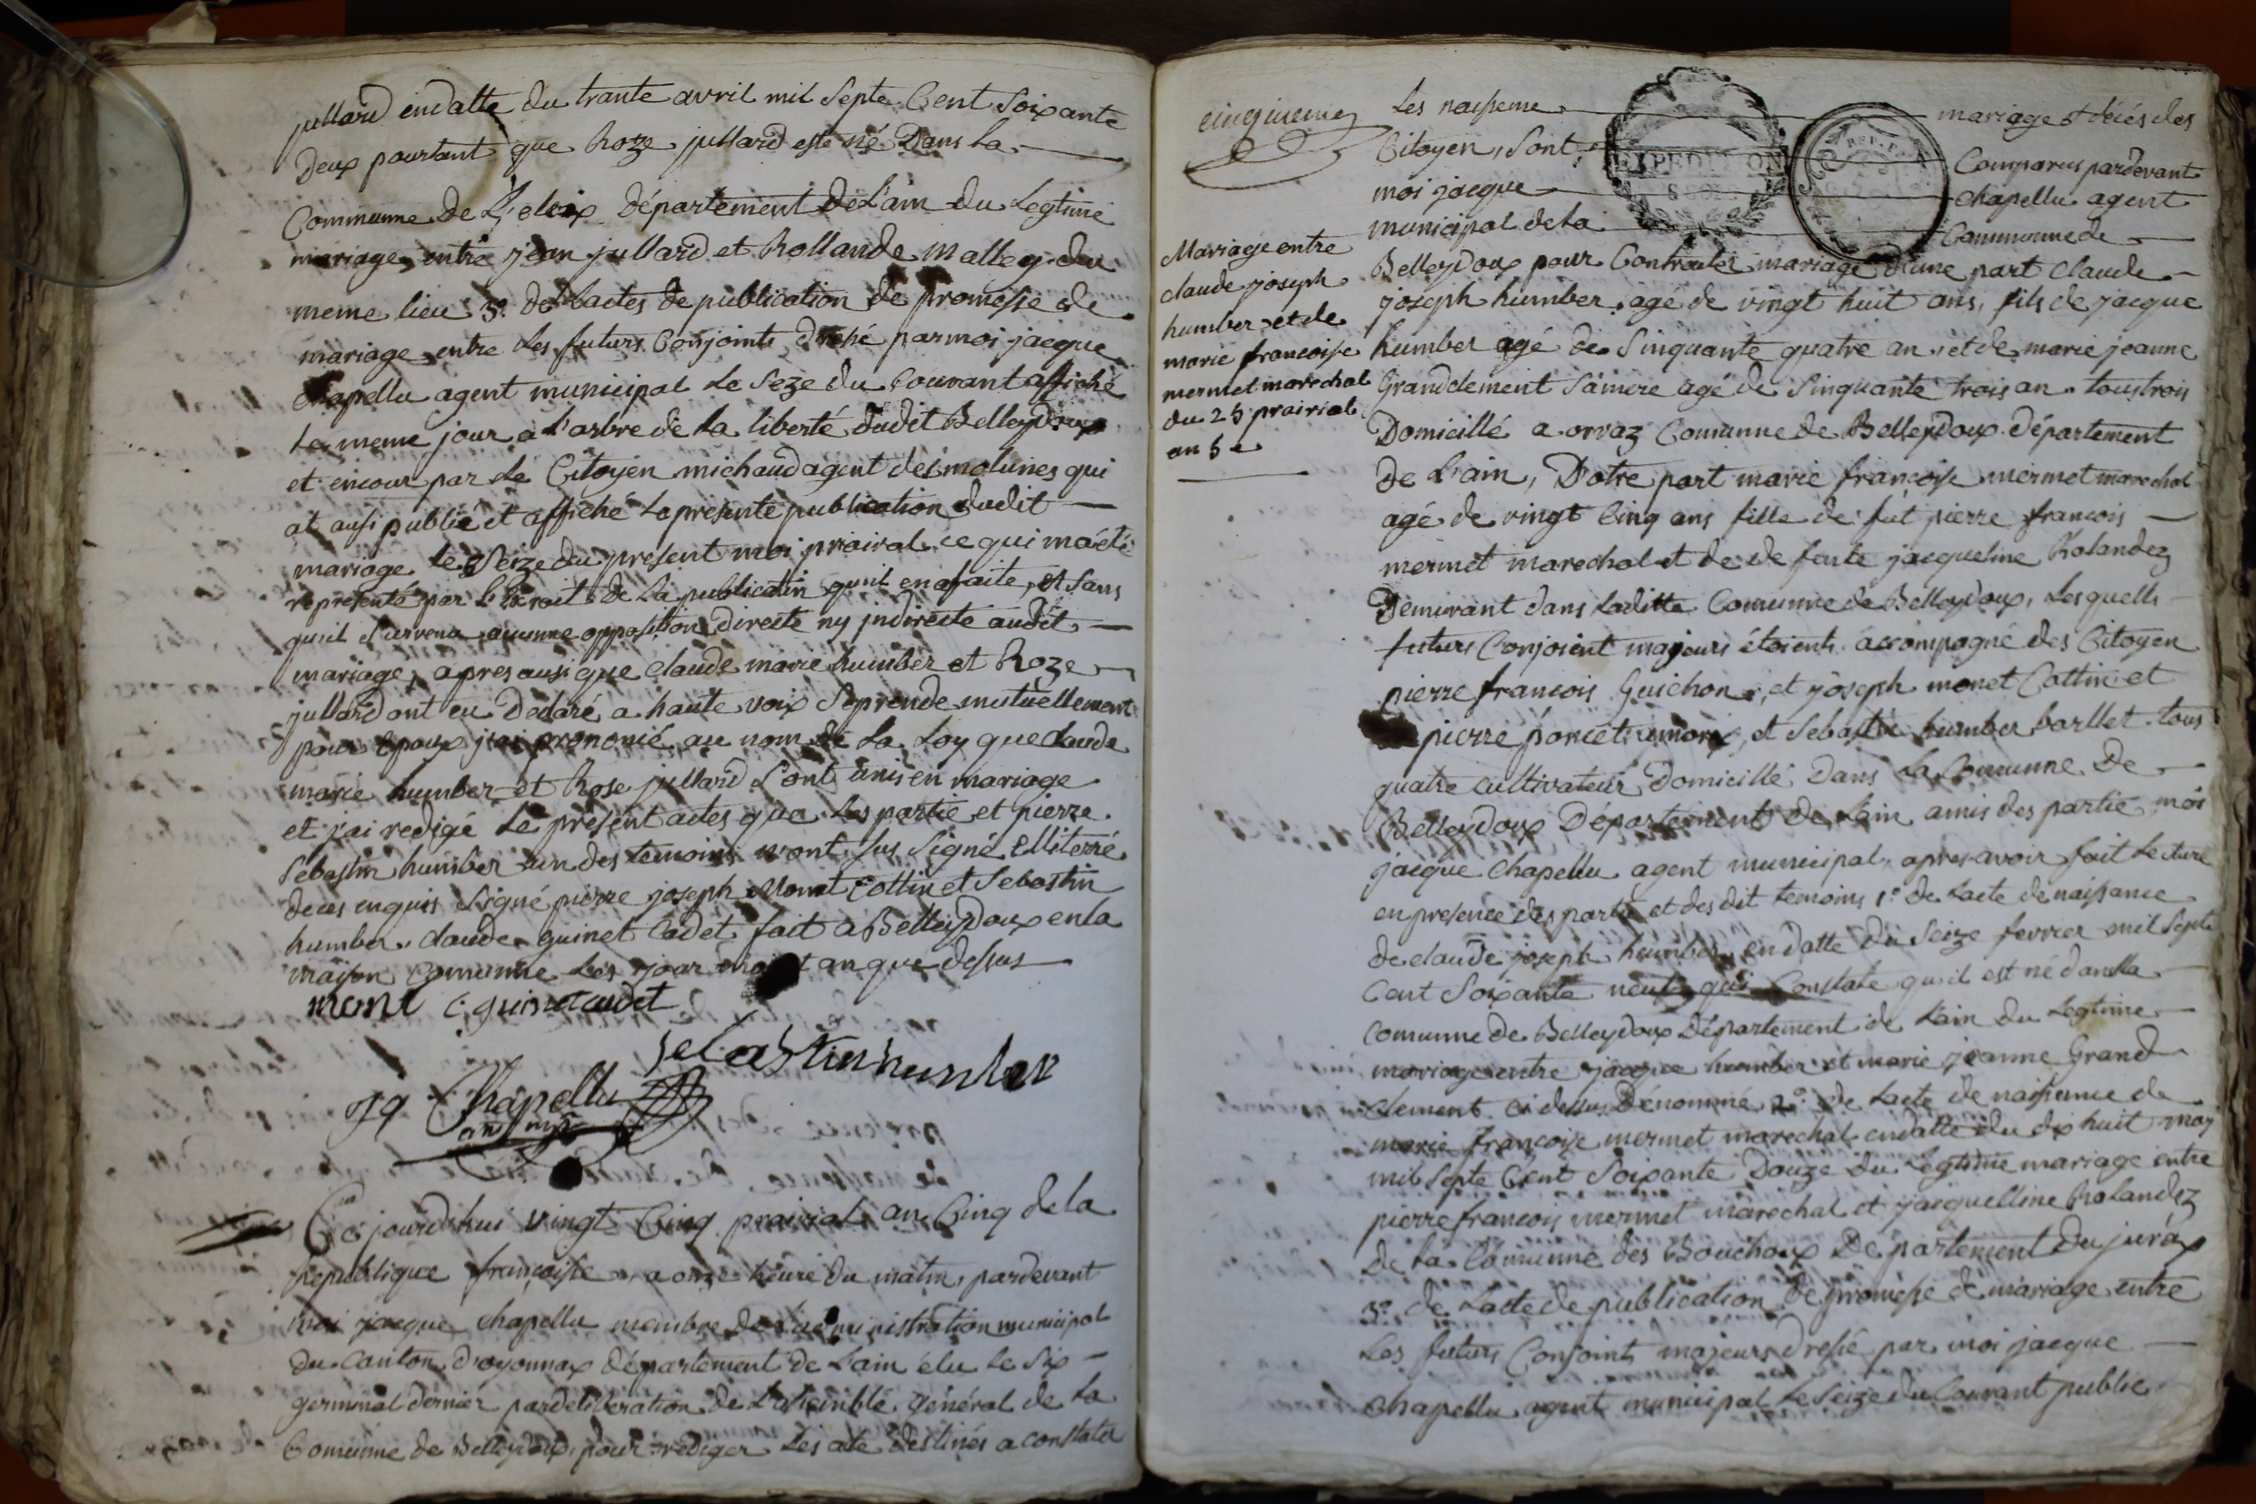 jullard en datte du trante avril mil septe Cent Soixante
Deux pourtant que Roze jullard este né Dans la
Commune De Département De L'ain Du Legtime
mariage entre jean jullard et Rollande malley du
meme lieu 3º de L'actes de publication de promesse de
mariage entre les futurs Conjoints par moi jacque
Chapellu agent municipal le Seze du Courant affiché
Le meme jour a L'arbre de La liberté dudit Belleydoux
et encour par Le Citoyen michaud agent des molunes qui
at ausi publié et affiché la presente publication dudit
mariage le Seize du present moi prairal ce qui ma été
representé par L'Extrait de la publication qu'il en a faite, et sans
qu'il survenu aucunne opposition directe ny jndirecte audit
mariage, apres ausi que claude marie humber et Roze
jullard ont eu Declaré a haute voix Se prende mutuellement
pour Epoux j'ai prononcé au nom de La Loy que claude
marie humber et Rose jullard Sont unis en mariage
et j'ai redigé Le présent actes que Les partie et pierre
Sebastin humber un des temoins n'ont sus Signé Illiteré
de ces enquis Signé pierre joseph Monet Cottin et Sebastin
humber. claude guinet Cadet fait a Belleydoux en la
maison Commune Les jour moi et an que dessus
monet c guinet cadet
sebastin humber
jq Chapellu
an mpl
Ce jourd'hui vingt Cinq prairial an Cinq de la
republique françoisse a onze heure du matin, pardevant
moi jacque chapellu membre de l'administration municipal
du Canton d'oyonnax département de L'ain élu le Six
germinal dernier par deliberation de L'assemblé général de la
Commune de Belleydoux, pour rediger Les ate destinés a constater
cinqiueme
Mariage entre
claude joseph
humber et de
marie francoise
mermet marechal
du 25 prairial
an 5e
Les naissense mariage et décés des
Citoyen, Sont EXPEDITION Comparus pardevant
moi jacque chapellu agent
municipal de la Commune de
Belleydoux pour Contracter mariage d'une part claude
joseph humber agé de vingt huit ans, fils de jacque
humber agé de Sinquante quatre an, et de marie jeanne
Grandclement Sa mere agé de Sinquante trois an tous trois
Domicillé a orvaz Comunne de Belleydoux département
De L'ain, D'otre part marie françoise mermet marechal
agé de vingt Cinq ans fille de fut pierre francois
mermet marechal et de de funte jacqueline Rolandez
Demurant dans Laditte Comunne de Belleydoux, Lesquells
futurs Conjoient majeurs étoient accompagné des Citoyen
pierre francois Guichon, et joseph monet Cottin et
pierre poncet et Sebastin humber barllet tous
quatre cultivateur Domicillé Dans la Comunne De
Belleydoux Département De L'ain amis des partie, moi
jacque chapellu agent municipal, apres avoir fait Lecture
en presence des partie et des dit temoins 1º de Lacte de naissance
de claude joseph humber en datte du Seize fevrier mil Septe
Cent Soixante neuf qui Constate qu'il est né dans la
Comunne de Belleydoux Département de L'ain du Legtime
mariage entre jacque humber et marie jeanne Grand
clement ci dessus Dénommé, 2º de Lacte de naissance de
marie françoise mermet marechal en datte du dix huit may
mil Septe Cent Soixante Douze du Legtime mariage entre
pierre francois mermet marechal et jacquelline Rolandez
De la Comunne des Bouchoux Departement du jurax
3º de Lacte de publication de promesse de mariage entre
Les futurs Conjoints majeurs dresé par moi jacque
chapellu agent municipal le Seize du Courant public